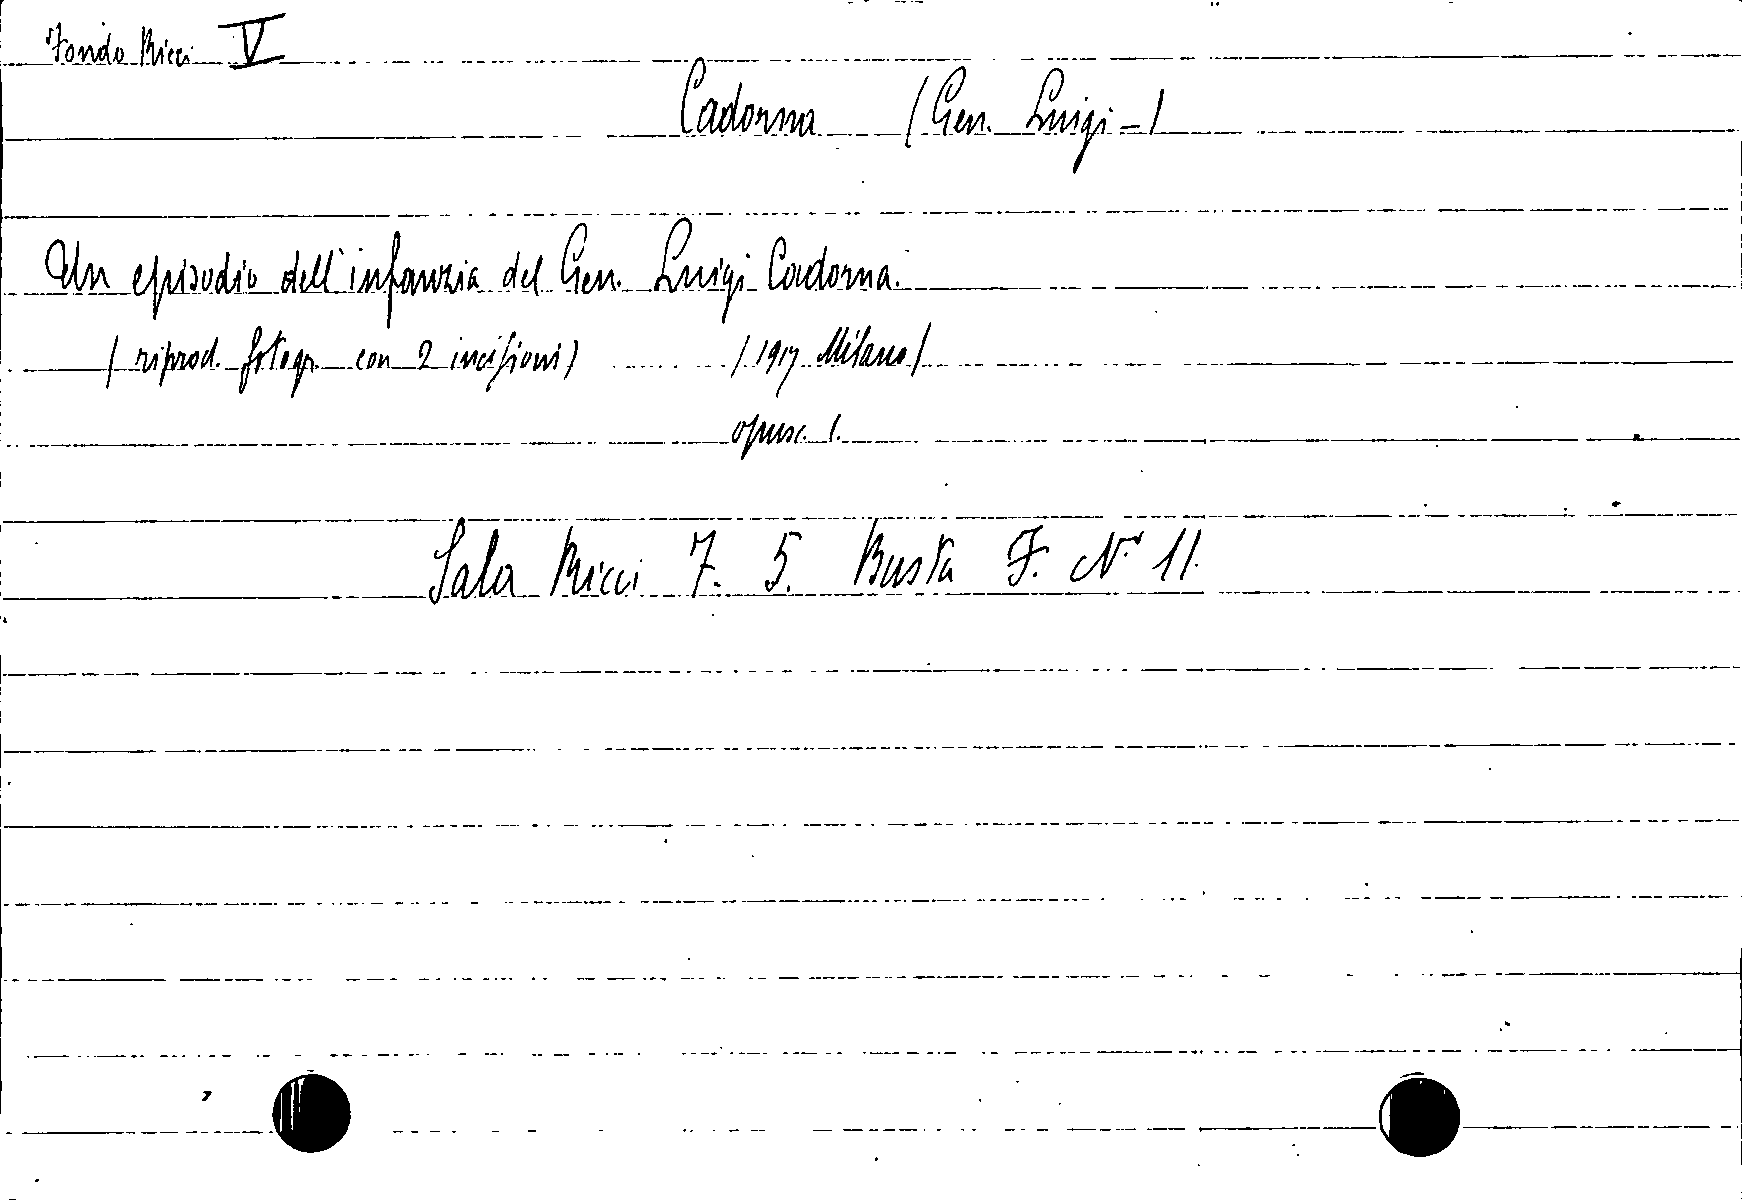 Fondo Ricci V
Cadorna (Gen. Luigi -)
Un episodio dell'infanzia del Gen. Luigi Cadorna.
(riprod. fotogr. con 2 incisioni) (1917 Milano)
opusc. 1.
Sala Ricci 7. 5. Busta F. N° 11.